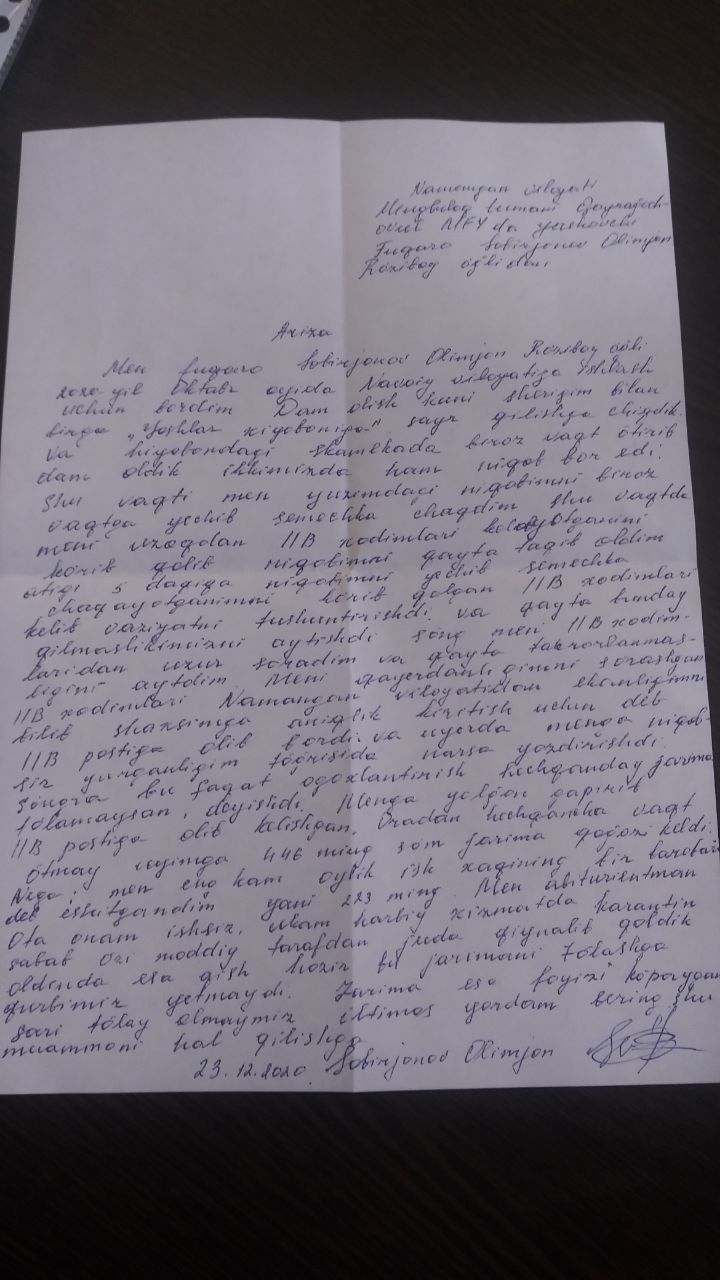 Namangan viloyati
Mingbuloq tumani
ovul MFY da yashovchi
Fuqaro Sobirjonov Olimjon
Róziboy óğli dan
Ariza
Men fuqaro Sobirjonov Olimjon Róziboy óğli
2020-yil Oktabr oyida Navoiy viloyatiga Ishlash
uchun bordim Dam olish kuni sherigim bilan
birga „Yoshlar xiyoboniga" sayr qilishga chiqdik.
va hiyobondagi skameykada biroz vaqt ótirib
dam oldik ikkimizda ham niqob bor edi.
Shu vaqti men yuzimdagi niqobimni biroz
vaqtga yechib semechka chaqdim shu vaqtda
meni uzoqdan IIB xodimlari kelayotganini
kórib qolib niqobimni qayta taqib oldim
atigi 5 daqiqa niqobimni yechib semechka
chaqayotganimni kórib qolgan IIB xodimlari
kelib vaziyatni tushuntirishdi. va qayta bunday
qilmasligimizni aytishdi sóng men IIB xodim-
laridan uzur soradim va qayta takrorlanmas-
ligini aytdim. Meni qayerdanligimni sorashgan
IIB xodimlari Namangan viloyatidan ekanligimni
bilib shaxsimga aniqlik kiritish uchun deb
IIB postiga olib bordi. va uyerda menga niqob-
siz yurganligim tóğrisida narsa yozdirishdi.
Sóngra bu faqat ogoxlantirish hechqanday jarima
tólamaysan, deyishdi. Menga yolğon gapirib
IIB postiga olib kelishgan. Oradan hechqancha vaqt
ótmay uyimga 446 ming sóm jarima qoğozi keldi.
Nega, men eng kam oylik ish xaqining bir barobari
deb eshitgandim yani 223 ming. Men abiturientman
Ota onam ishsiz, ukam harbiy xizmatda karantin
sabab ózi moddiy tarafdan juda qiynalib qoldik
oldinda esa qish hozir bu jarimani tólashga
qurbimiz yetmaydi. Jarima esa foyizi kópaygan
sari tólay olmaymiz iltimos yordam bering shu
muammoni hal qilishga
23.12.2020. Sobirjonov Olimjon